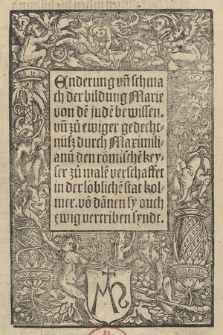 Enderung uñ schma
ch der bildung Marie
von dē judē bewissen.
vñ zů ewiger gedecht
nüß durch Maximili
anū den römischē key
ser zů malē verschaffet
in der löblichē stat kol
mer. vō dañen sy ouch
ewig vertriben syndt.